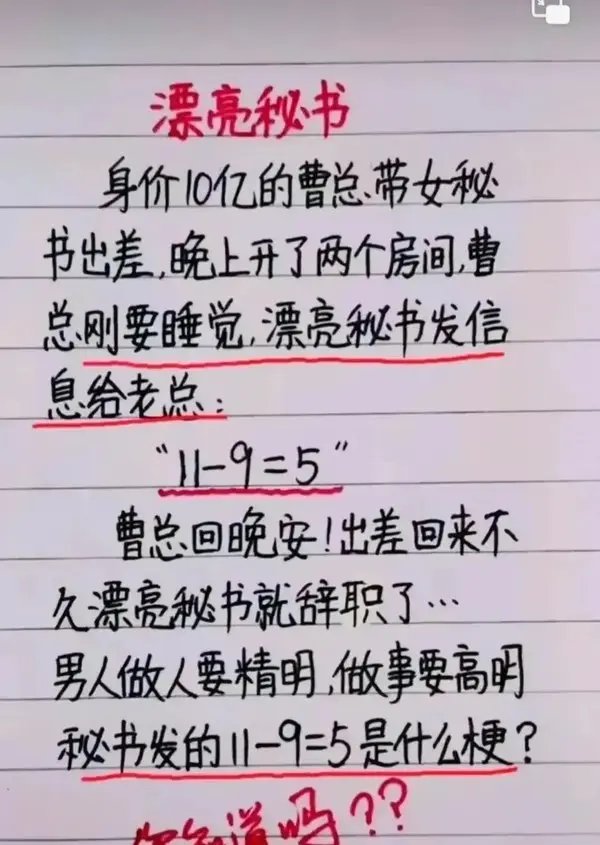 漂亮秘书
身价10亿的曹总带女秘
书出差,晚上开了两个房间,曹
总刚要睡觉,漂亮秘书发信
息给老总:
"11-9=5"
曹总回晚安!出差回来不
久漂亮秘书就辞职了…
男人做人要精明,做事要高明
秘书发的11-9=5是什么梗?
道吗??